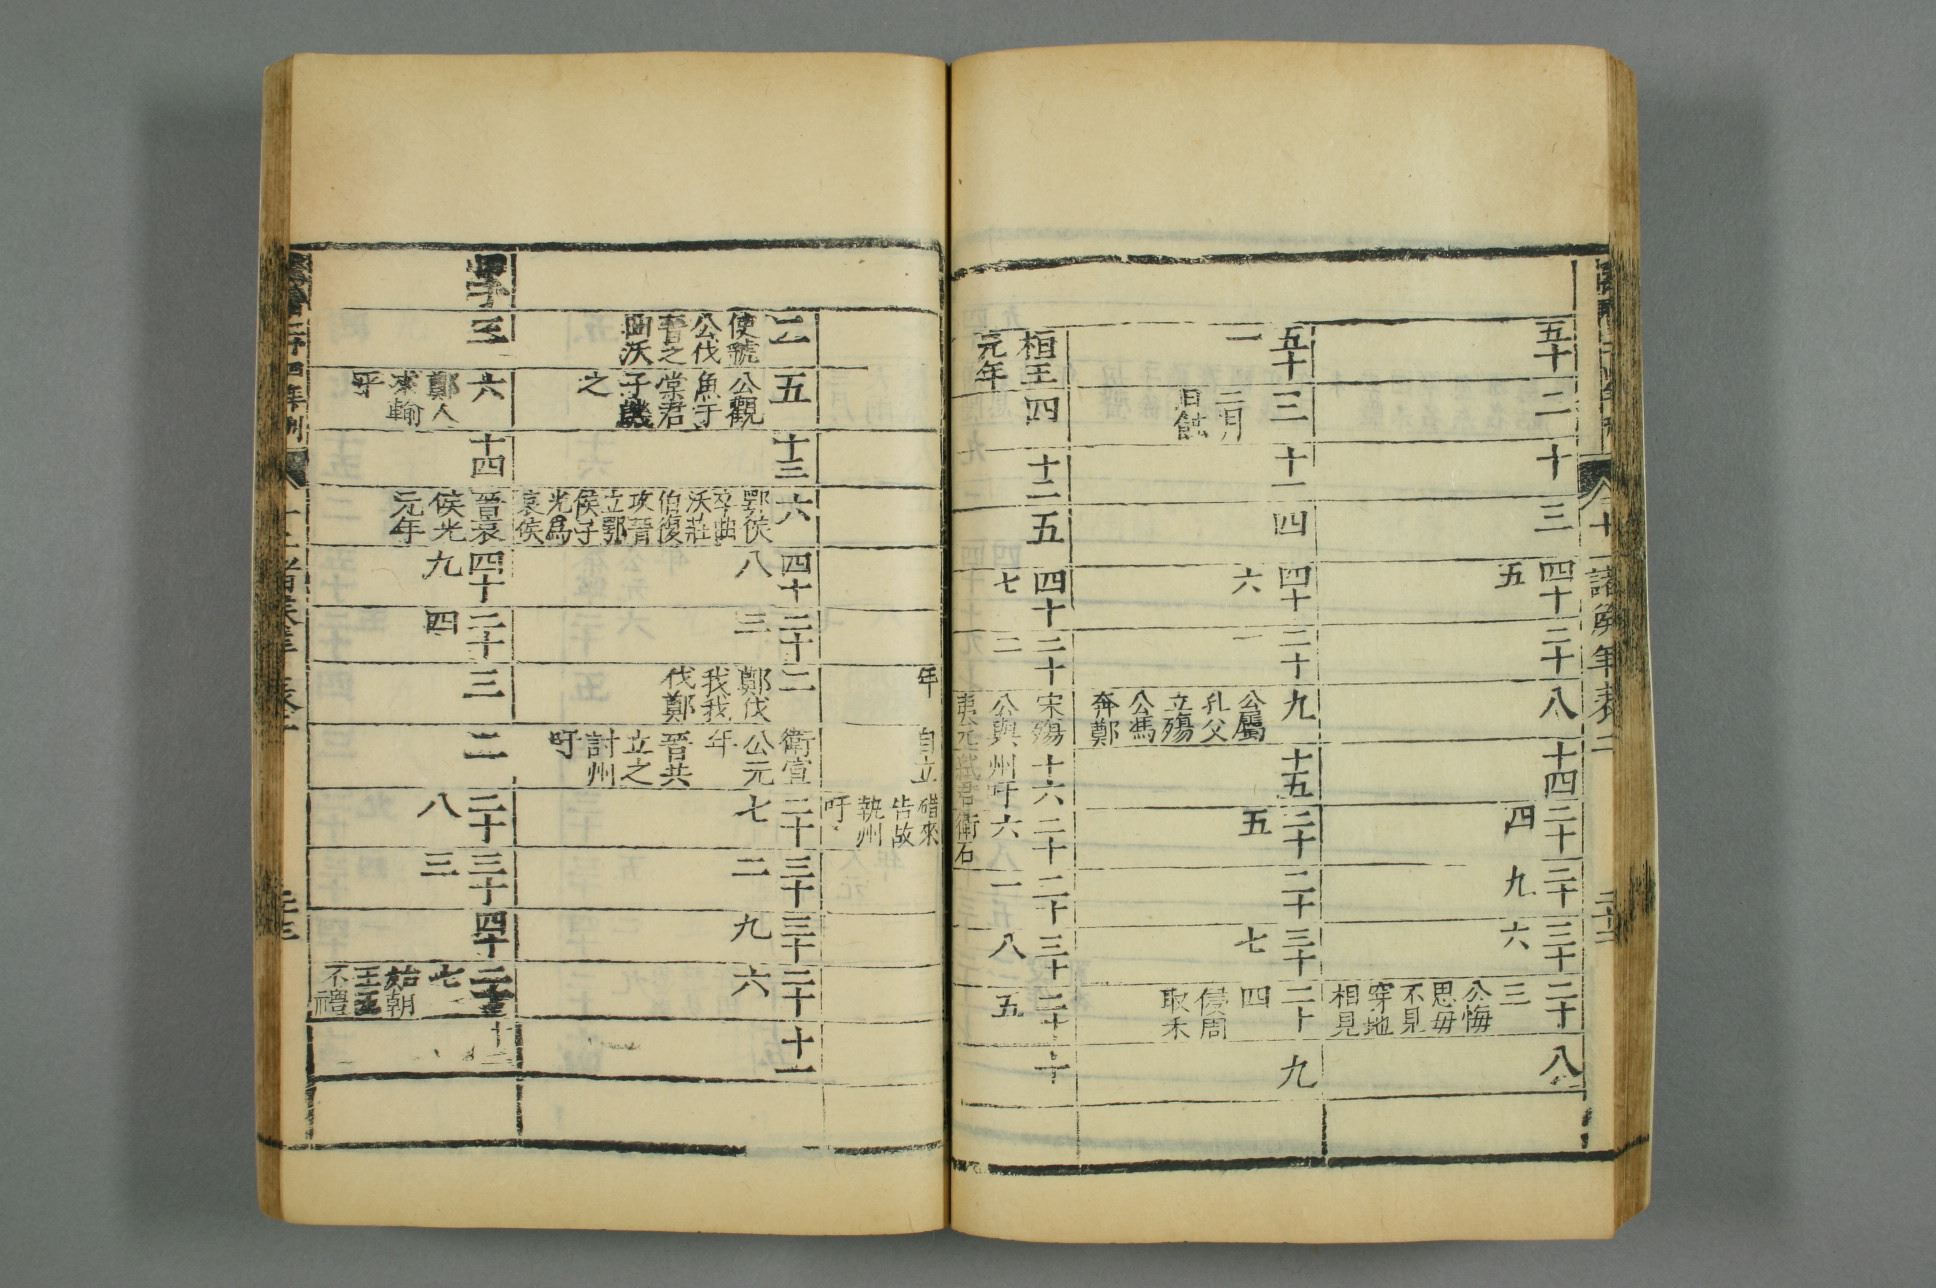 十二諸侯年表二
五十
二
十
三
四十五
二十
八
十四
二十四
二十九
三十六
二十三 公悔思毋不見穿地相見
八
五十一
三 二月日蝕
十一
四
四十六
二十一
九 公屬孔父立殤公馮奔鄭
十五
二十五
二十
三十七
二十四 侵周取禾
九
桓王元年
四
十二
五
四十七
二十二
宋殤公與夷元年
十六 州吁弒君自立
二十六 衛石碏來告故執州吁
二十一
三十八
二十五
十
二 使虢公伐晉之曲沃
五 公觀魚于棠君子譏之
十三
六 鄂侯卒曲沃莊伯復攻晉立鄂侯子光爲哀侯
四十八
二十三
二 鄭伐我我伐鄭
衛宣公元年晉共立之討州吁
二十七
三十二
三十九
二十六
十一
甲子
三
六 鄭人來輸平
十四
晉哀侯光元年
四十九
二十四
三
二
二十八
三十三
四十
二十七 始朝王王不禮
十二